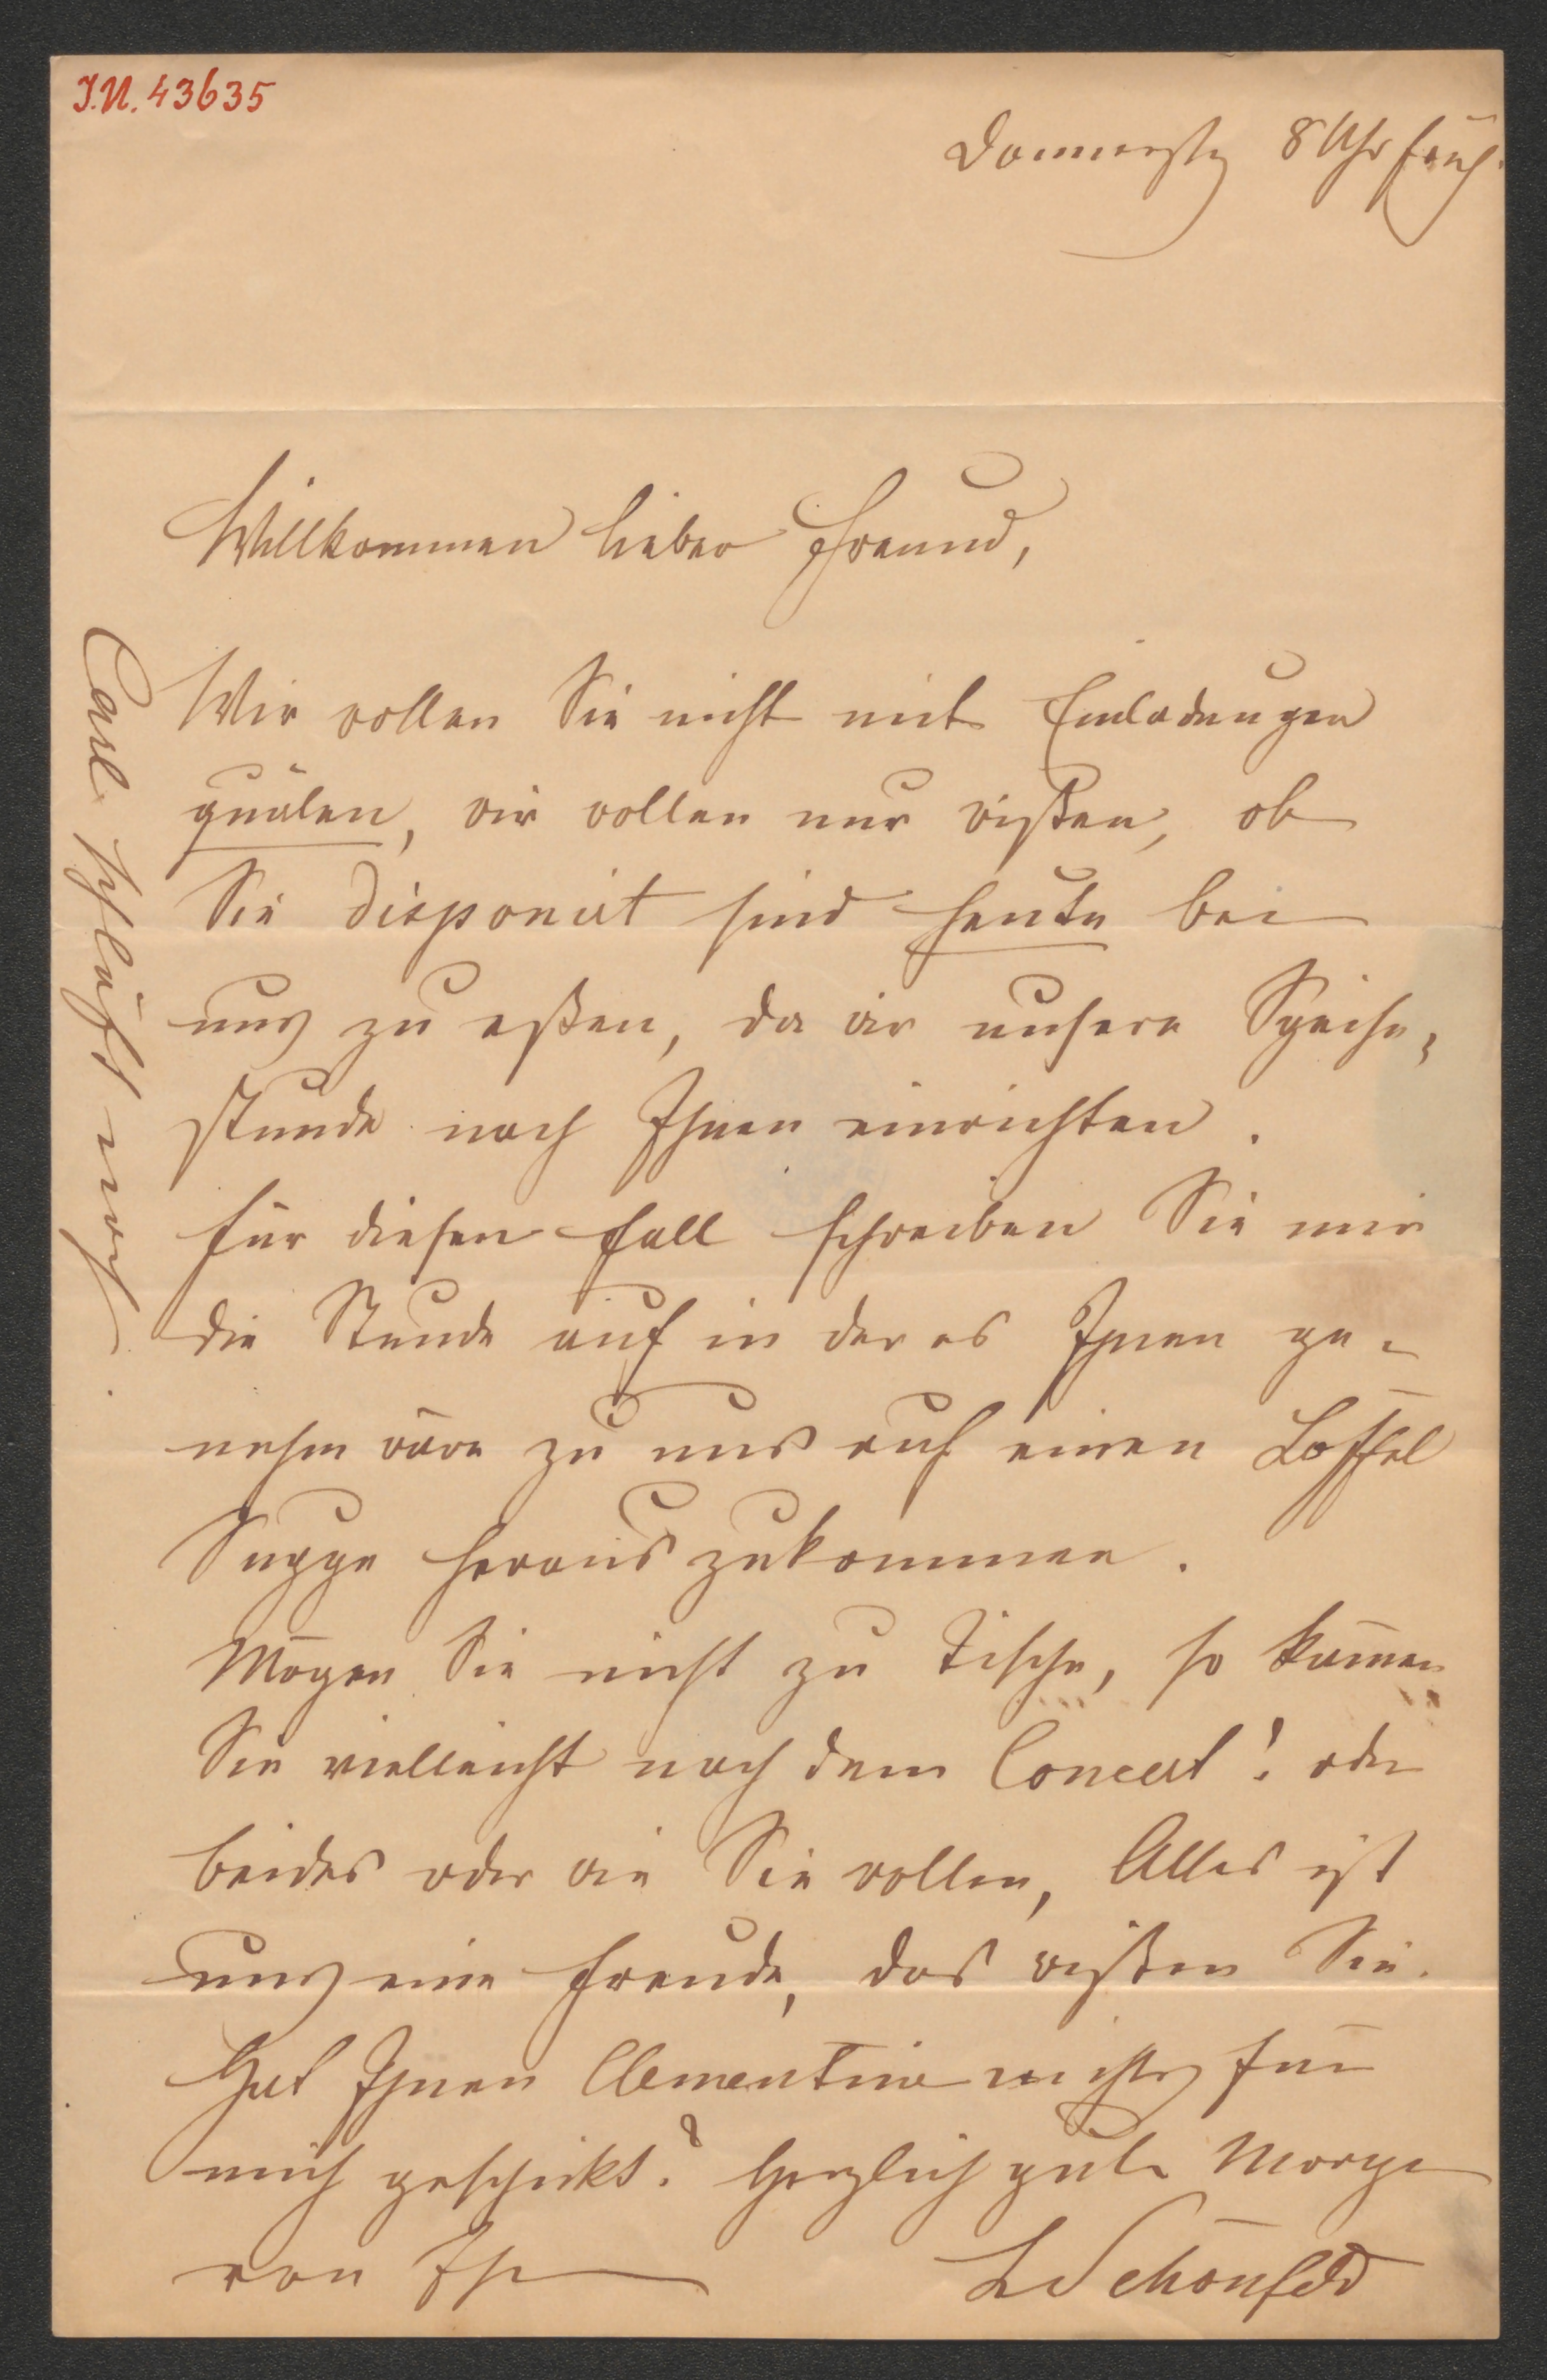 I.N. 43635
Donnerstg 8 Uhr früh.
Willkommen lieber Freund,
Wir wollen Sie nicht mit Einladungen
quälen, wir wollen nur wißen, ob
Sie disponirt sind heute bei
uns zu eßen, da wir unsere Speise-
stunde nach Ihnen einrichten.
Für diesen Fall schreiben Sie mir
die Stunde auf in der es Ihnen ge-
nehm wäre zu uns auf einen Löffel
Suppe herauszukommen.
Mögen Sie nicht zu Tische, so kom̄en
Sie vielleicht nach dem Concert! oder
beides oder wie Sie wollen, Alles ist
uns eine Freude, das wißen Sie.
Hat Ihnen Clementine nichts für
mich geschickt? Herzlich gute Morgen
von Ihr
LSchönfeld
Carl schläft noch.